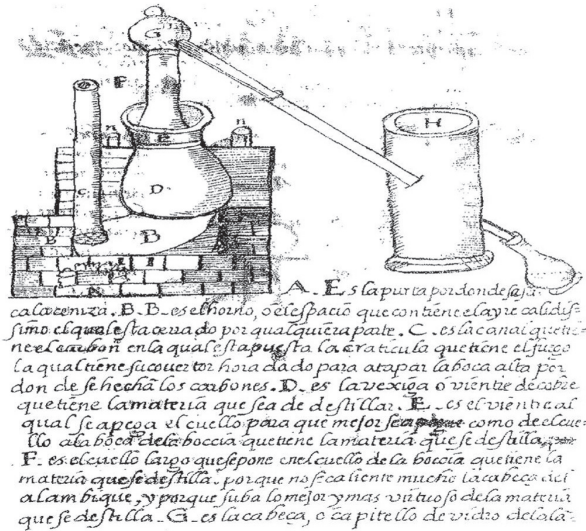 G
F
H
n
n
E
C
D
B
B
B
A
A. Es la puerta por donde se sa
ca la ceniza. B. B. es el horno, o el espacio que contiene el ayre calidis-
simo el qual esta cerrado por qualquiera parte. C. es la canal que tie-
ne el carbon en la qual esta puesta la craticula que tiene el fuego
la qual tiene su couertor horadado para atapar la boca alta por
donde se hechã los carbones. D. es la vexiga o vientre de cobre
que tiene la materia que se a de destillar. E. es el vientre al
qual se apega el cuello para que mejor se como de el cue-
llo a la boca de la boccia que tiene la materia que se destilla,
F. es el cuello largo que se pone en el cuello de la boccia que tiene la
materia que se destilla. porque no se caliente mucho la cabeça del
alambique, y porque suba lo mejor y mas virtuoso de la materia
que se destilla. G. es la cabeça, o capitello de vidro de la la-